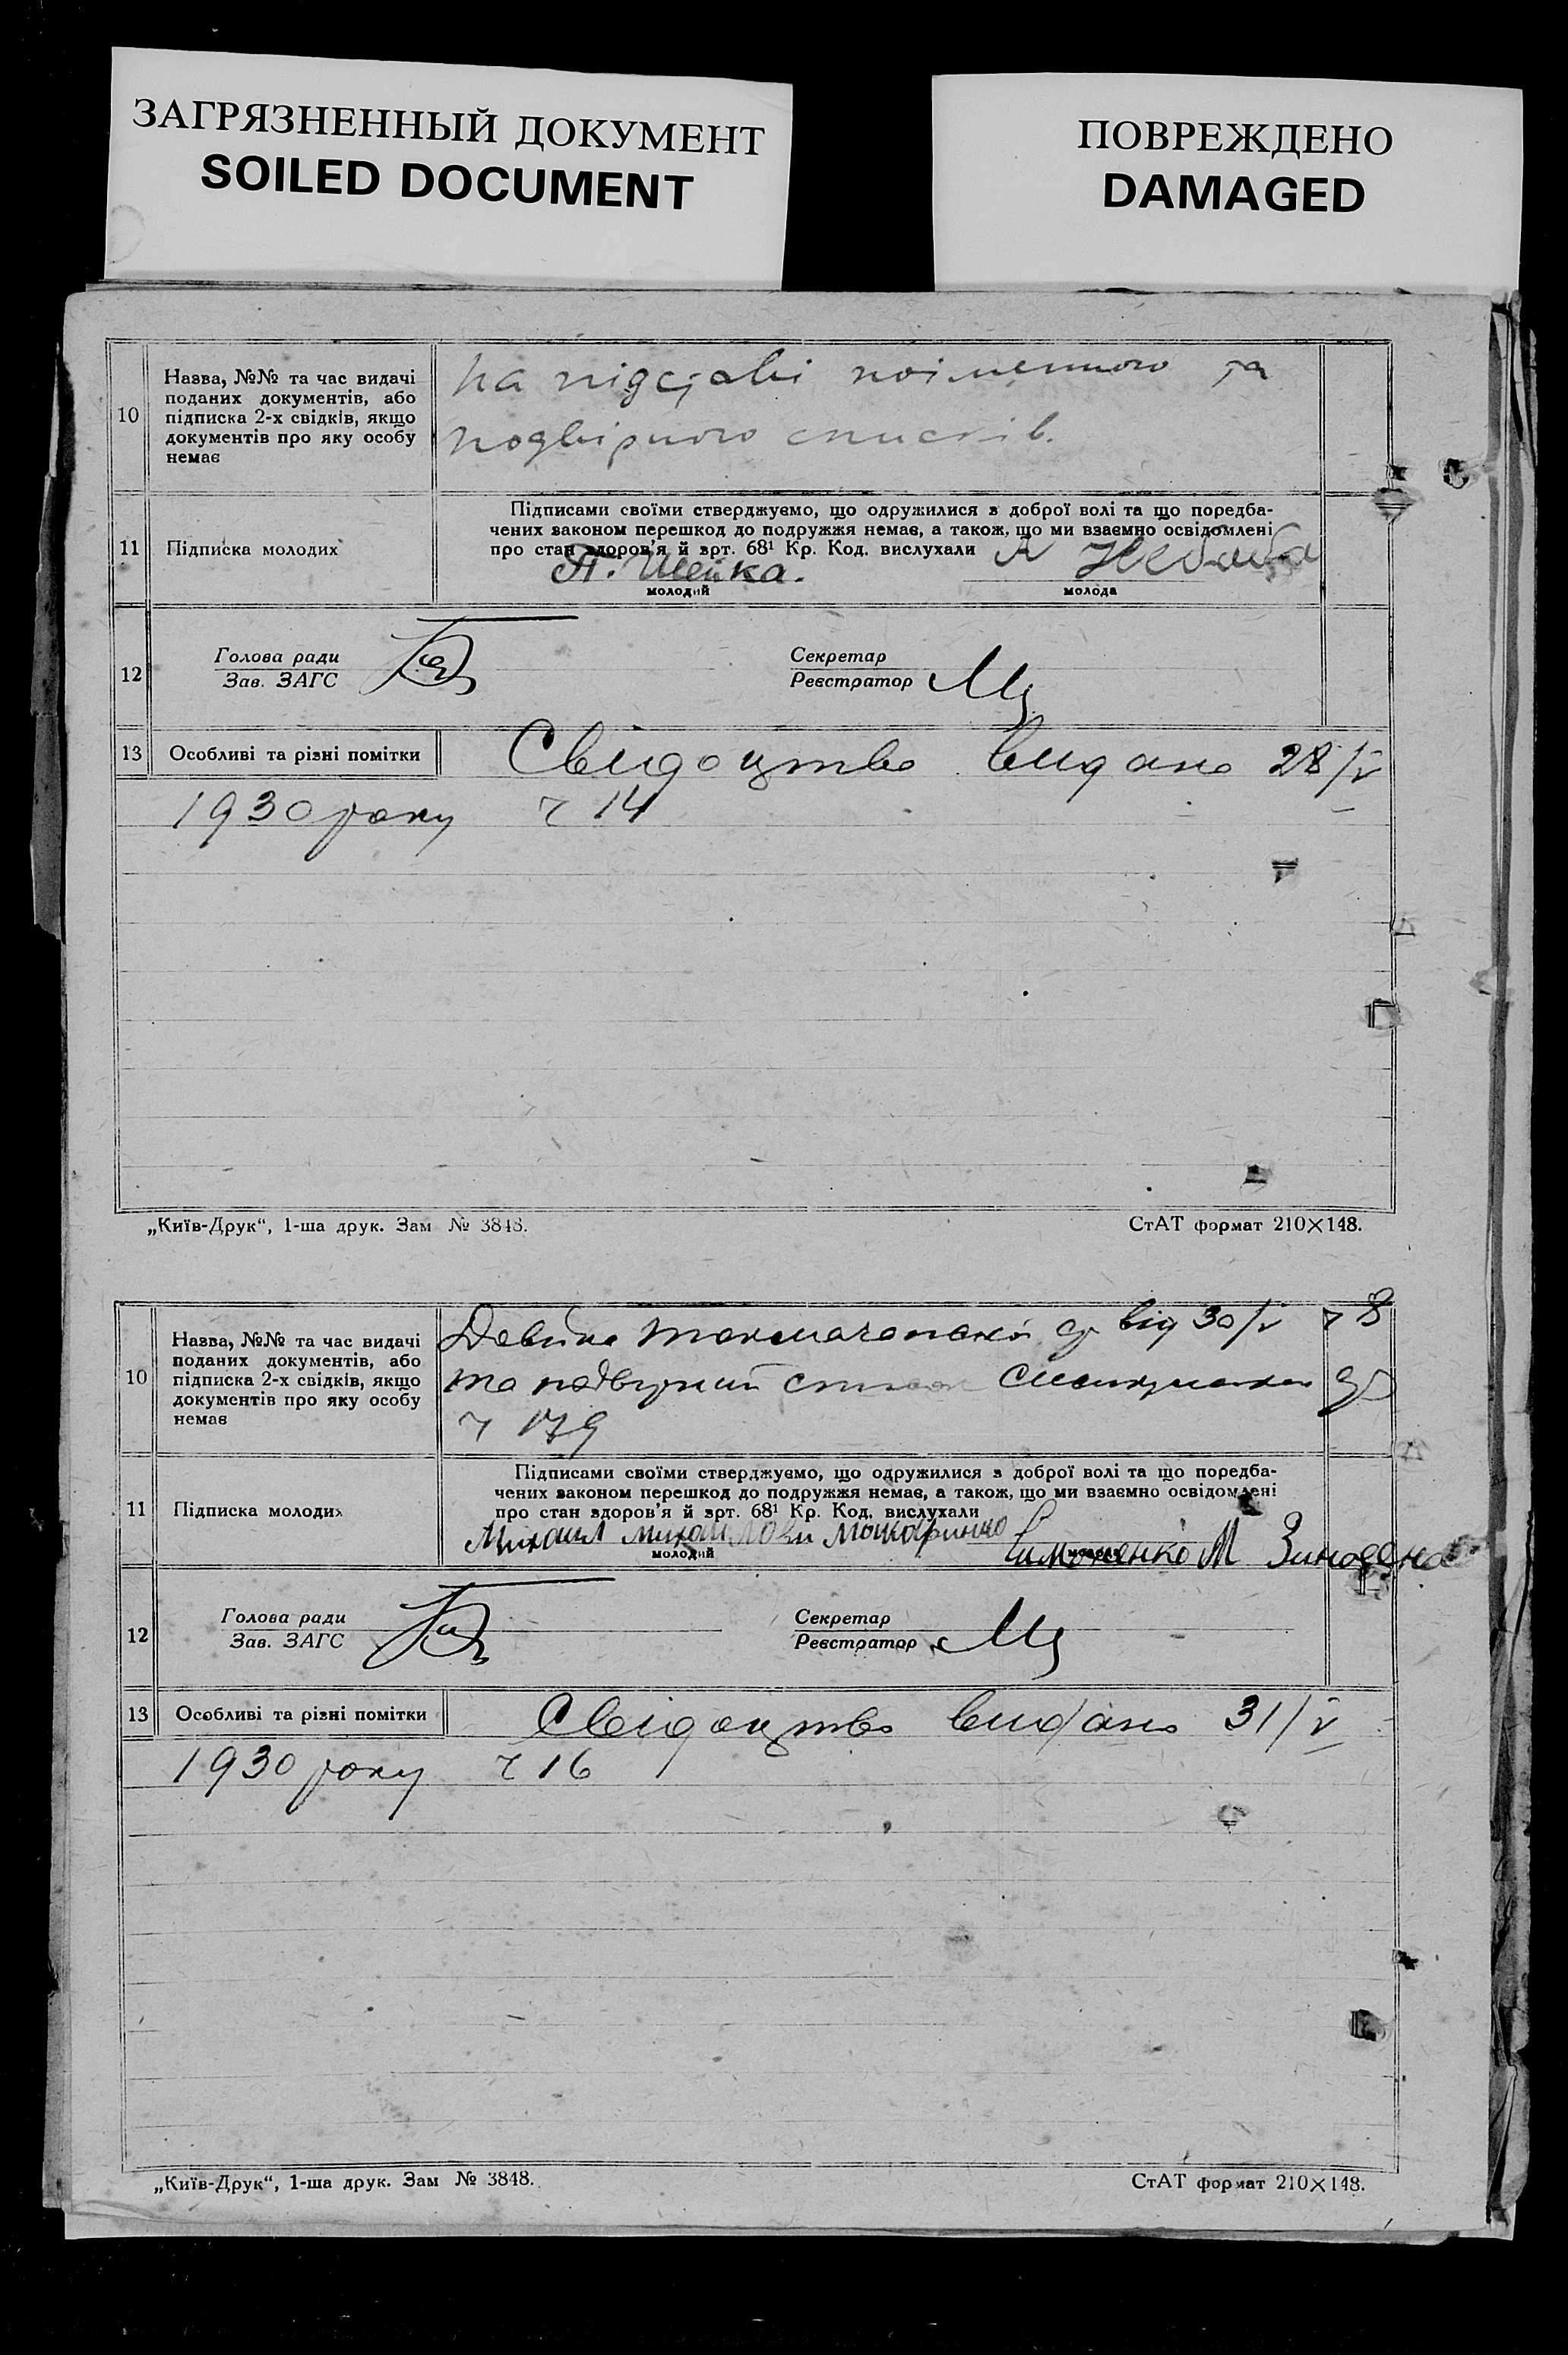 ЗАГРЯЗНЕННЫЙ ДОКУМЕНТ
SOILED DOCUMENT
ПОВРЕЖДЕНО
DAMAGED
10
Назва, №№ та час видачі
поданих документів, або
підписка 2-х свідків, якщо
документів про яку особу
немає
На підставі поіменного та
подвірного списків.
11
Підписка молодих
Підписами своїми стверджуємо, що одружилися з доброї волі та що поредба-
чених законом перешкод до подружжя немає, а також, що ми взаємно освідомлені
про стан здоров'я й арт. 68¹ Кр. Код. вислухали
П. Шейка.
молодий
молода
12
Голова ради
Зав. ЗАГС
Секретар
Реєстратор
13
Особливі та різні помітки
Свідоцтво видано 28/V
1930 року ч 14
„Київ-Друк“, 1-ша друк. Зам № 3848.
СтАТ формат 210×148.
10
Назва, №№ та час видачі
поданих документів, або
підписка 2-х свідків, якщо
документів про яку особу
немає
від 30/V ч 8
та подвірний список
ч 179
11
Підписка молодих
Підписами своїми стверджуємо, що одружилися з доброї волі та що поредба-
чених законом перешкод до подружжя немає, а також, що ми взаємно освідомлені
про стан здоров'я й арт. 68¹ Кр. Код. вислухали
Михаил
молодий
молода
Тимошенко М
12
Голова ради
Зав. ЗАГС
Секретар
Реєстратор
13
Особливі та різні помітки
Свідоцтво видано 31/V
1930 року ч 16
„Київ-Друк“, 1-ша друк. Зам № 3848.
СтАТ формат 210×148.